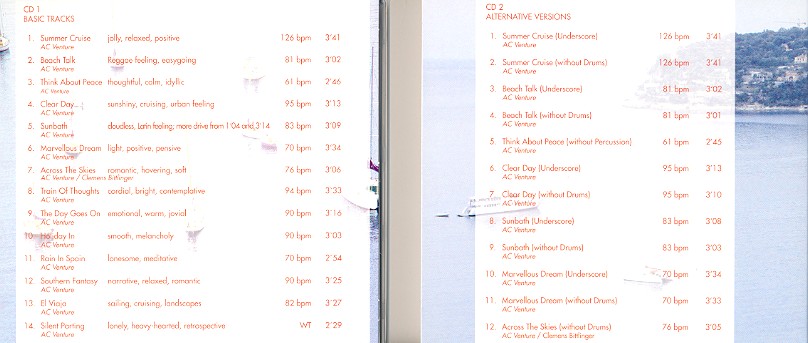 CD 1
BASIC TRACKS
1. Summer Cruise jolly, relaxed, positive 126 bpm 3'41
AC Venture
2. Beach Talk Reggae feeling, easygoing 81 bpm 3'02
AC Venture
3. Think About Peace thoughtful, calm, idyllic 61 bpm 2'46
AC Venture
4. Clear Day sunshiny, cruising, urban feeling 95 bpm 3'13
AC Venture
5. Sunbath cloudless, Latin feeling; more drive from 1'04 and 3'14 83 bpm 3'09
AC Venture
6. Marvellous Dream light, positive, pensive 70 bpm 3'34
AC Venture
7. Across The Skies romantic, hovering, soft 76 bpm 3'06
AC Venture / Clemens Bittlinger
8. Train Of Thoughts cordial, bright, contemplative 94 bpm 3'33
AC Venture
9. The Day Goes On emotional, warm, jovial 90 bpm 3'16
AC Venture
10. Holiday In smooth, melancholy 90 bpm 3'03
AC Venture
11. Rain In Spain lonesome, meditative 70 bpm 2'54
AC Venture
12. Southern Fantasy narrative, relaxed, romantic 90 bpm 3'25
AC Venture
13. El Viaje sailing, cruising, landscapes 82 bpm 3'27
AC Venture
14. Silent Parting lonely, heavy-hearted, retrospective WT 2'29
AC Venture
CD 2
ALTERNATIVE VERSIONS
1. Summer Cruise (Underscore) 126 bpm 3'41
AC Venture
2. Summer Cruise (without Drums) 126 bpm 3'41
AC Venture
3. Beach Talk (Underscore) 81 bpm 3'02
AC Venture
4. Beach Talk (without Drums) 81 bpm 3'01
AC Venture
5. Think About Peace (without Percussion) 61 bpm 2'45
AC Venture
6. Clear Day (Underscore) 95 bpm 3'13
AC Venture
7. Clear Day (without Drums) 95 bpm 3'10
AC Venture
8. Sunbath (Underscore) 83 bpm 3'08
AC Venture
9. Sunbath (without Drums) 83 bpm 3'03
AC Venture
10. Marvellous Dream (Underscore) 70 bpm 3'34
AC Venture
11. Marvellous Dream (without Drums) 70 bpm 3'33
AC Venture
12. Across The Skies (without Drums) 76 bpm 3'05
AC Venture / Clemens Bittlinger